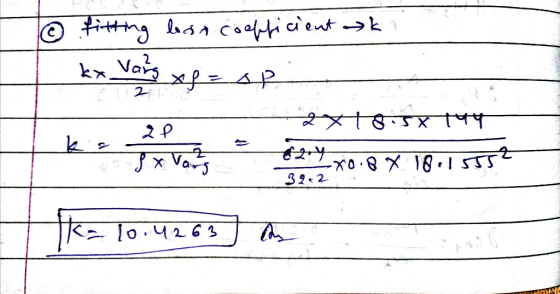 (c) fitting loss coefficient → k
k × Vavg² / 2 × ρ = ΔP
k = 2P / ρ × Vavg² = 2 × 18.5 × 144 / 62.4/32.2 × 0.8 × 18.1555²
K = 10.4263 Ans